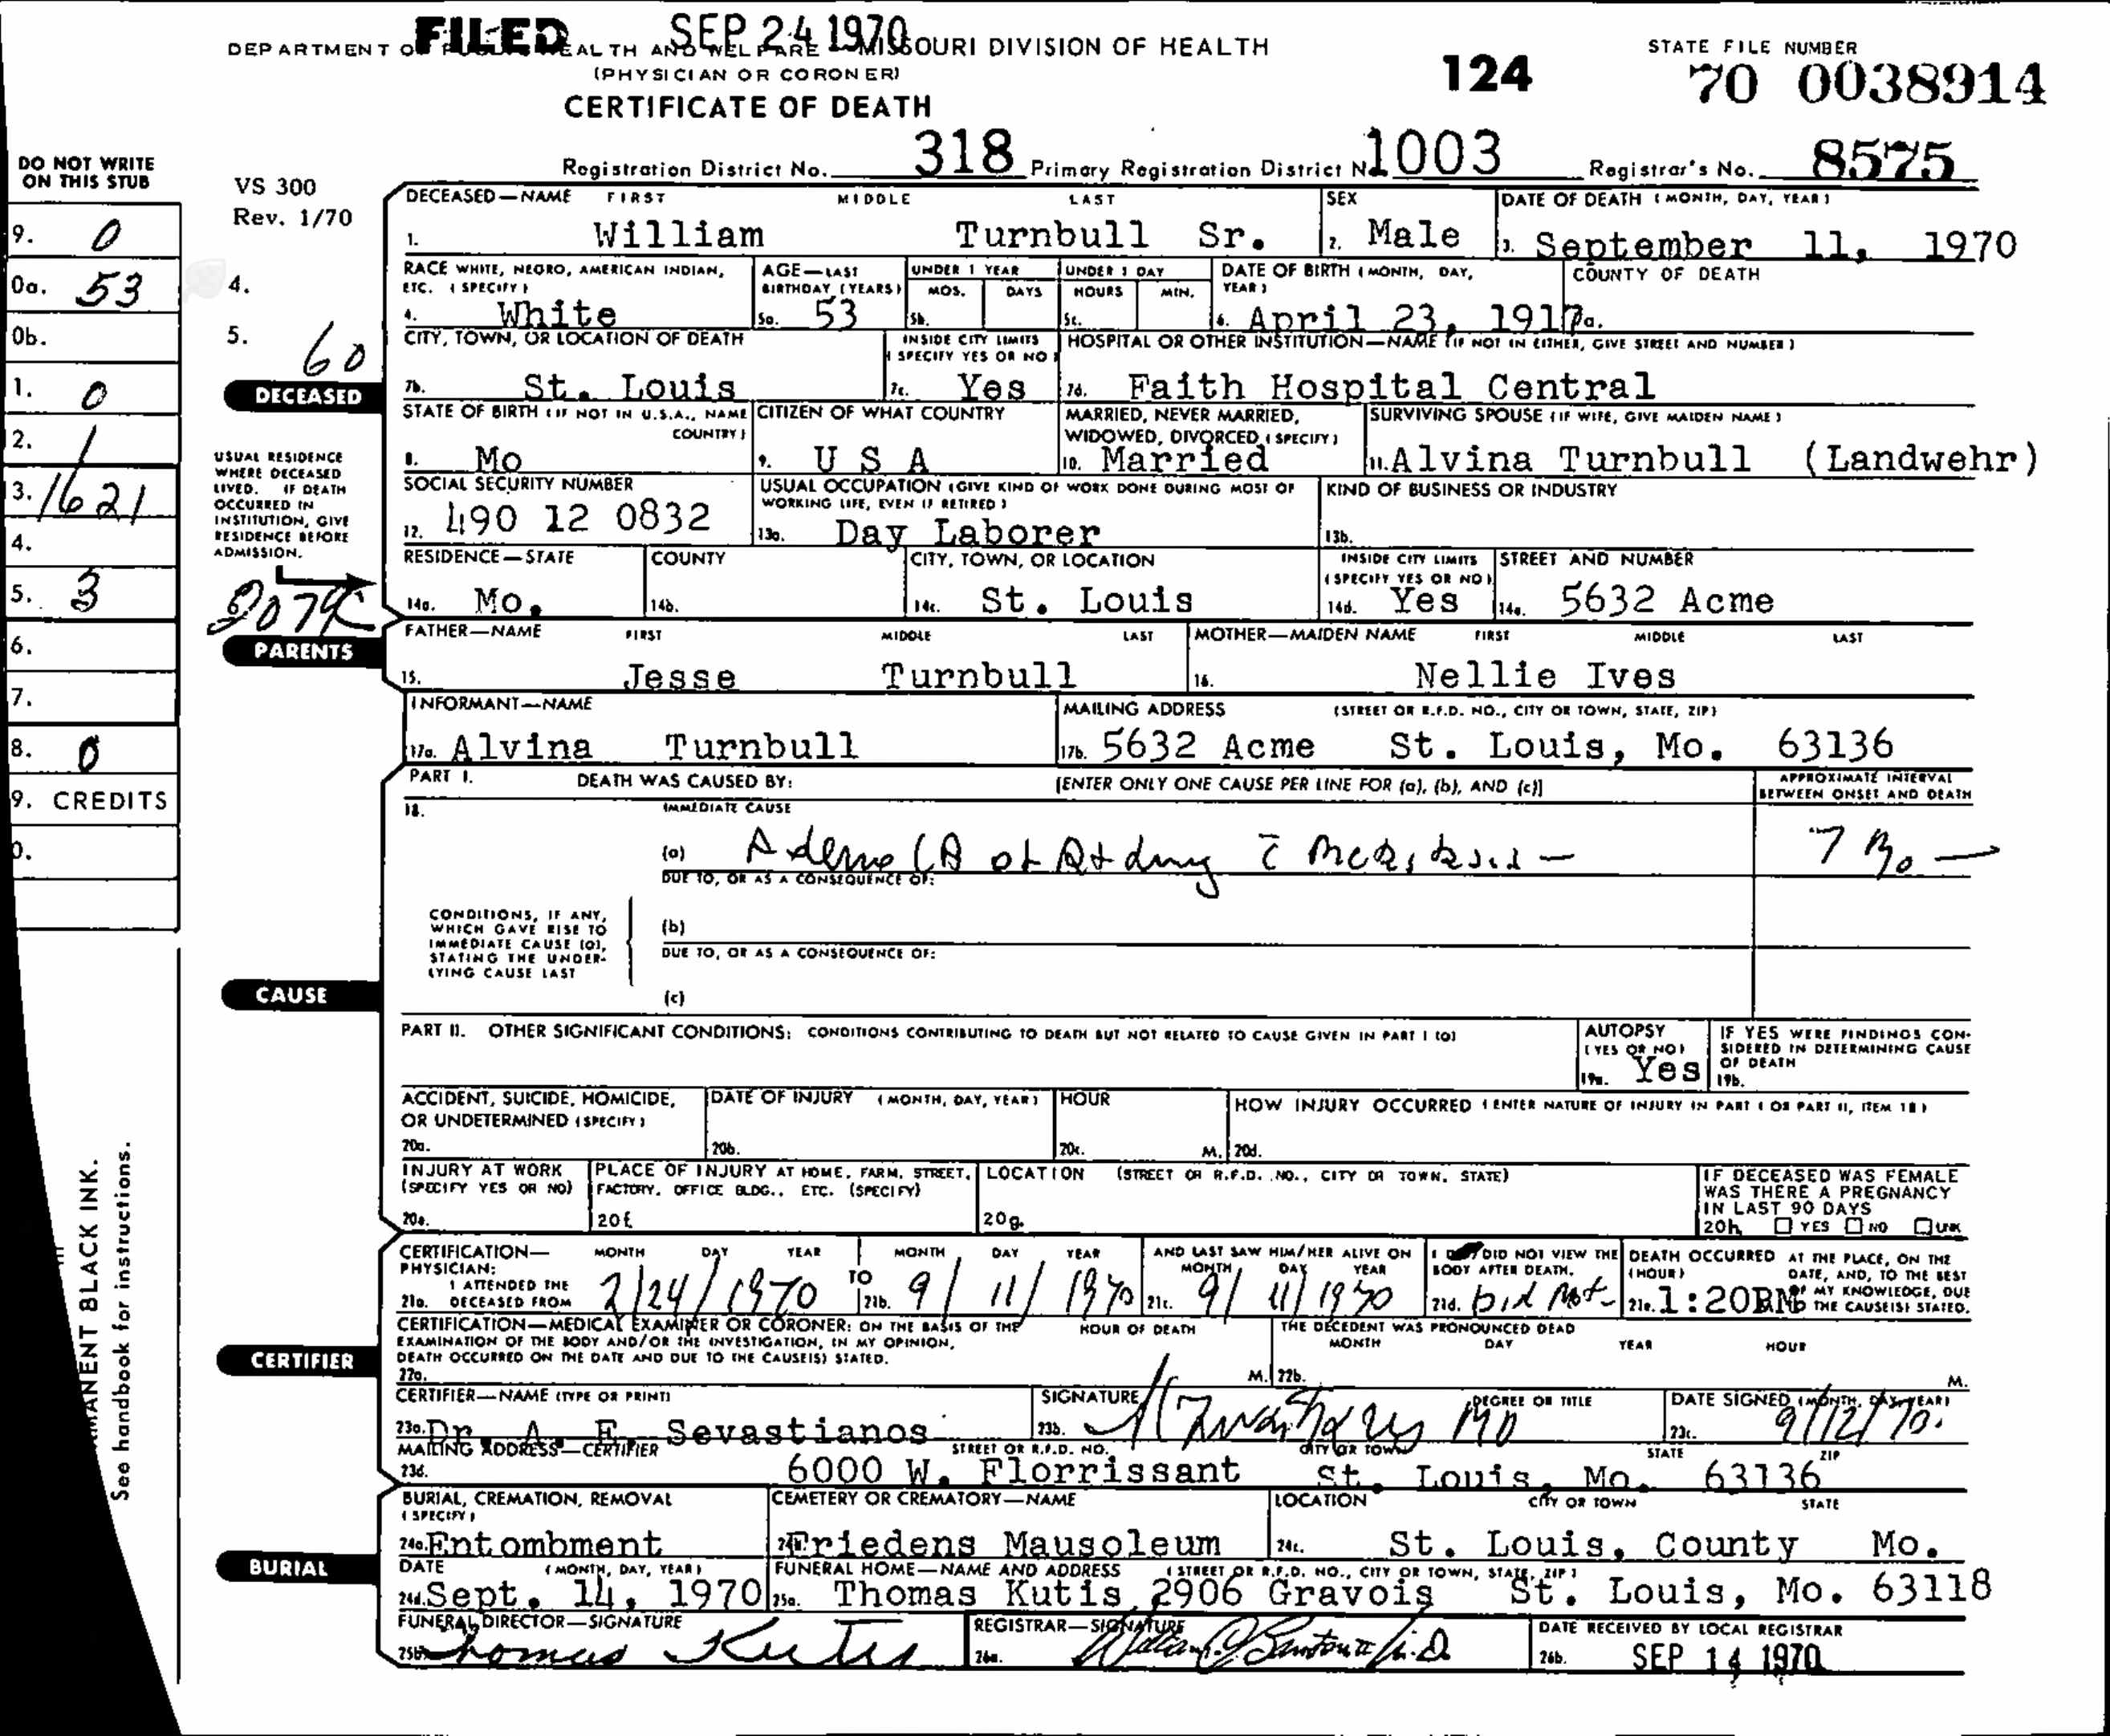 FILED SEP 24 1970
DEPARTMENT OF PUBLIC HEALTH AND WELFARE — MISSOURI DIVISION OF HEALTH
(PHYSICIAN OR CORONER)
CERTIFICATE OF DEATH
124
STATE FILE NUMBER
70 0038914
Registration District No. 318 Primary Registration District No. 1003 Registrar's No. 8575
DO NOT WRITE
ON THIS STUB
VS 300
Rev. 1/70
9. 0
0a. 53
0b.
1. 0
2. 1
3. 1621
4.
5. 3
6.
7.
8. 0
9. CREDITS
0.
4.
5. 60
DECEASED
USUAL RESIDENCE
WHERE DECEASED
LIVED. IF DEATH
OCCURRED IN
INSTITUTION, GIVE
RESIDENCE BEFORE
ADMISSION.
DECEASED—NAME FIRST MIDDLE LAST
1. William Turnbull Sr.
SEX
2. Male
DATE OF DEATH (MONTH, DAY, YEAR)
3. September 11, 1970
RACE WHITE, NEGRO, AMERICAN INDIAN,
ETC. (SPECIFY)
4. White
AGE—LAST
BIRTHDAY (YEARS)
5a. 53
UNDER 1 YEAR
MOS. DAYS
5b.
UNDER 1 DAY
HOURS MIN.
5c.
DATE OF BIRTH (MONTH, DAY,
YEAR)
6. April 23, 1917
COUNTY OF DEATH
7a.
CITY, TOWN, OR LOCATION OF DEATH
7b. St. Louis
INSIDE CITY LIMITS
(SPECIFY YES OR NO)
7c. Yes
HOSPITAL OR OTHER INSTITUTION—NAME (IF NOT IN EITHER, GIVE STREET AND NUMBER)
7d. Faith Hospital Central
STATE OF BIRTH (IF NOT IN U.S.A., NAME
COUNTRY)
8. Mo
CITIZEN OF WHAT COUNTRY
9. U S A
MARRIED, NEVER MARRIED,
WIDOWED, DIVORCED (SPECIFY)
10. Married
SURVIVING SPOUSE (IF WIFE, GIVE MAIDEN NAME)
11. Alvina Turnbull (Landwehr)
SOCIAL SECURITY NUMBER
12. 490 12 0832
USUAL OCCUPATION (GIVE KIND OF WORK DONE DURING MOST OF
WORKING LIFE, EVEN IF RETIRED)
13a. Day Laborer
KIND OF BUSINESS OR INDUSTRY
13b.
RESIDENCE—STATE
14a. Mo.
COUNTY
14b.
CITY, TOWN, OR LOCATION
14c. St. Louis
INSIDE CITY LIMITS
(SPECIFY YES OR NO)
14d. Yes
STREET AND NUMBER
14e. 5632 Acme
PARENTS
FATHER—NAME FIRST MIDDLE LAST
15. Jesse Turnbull
MOTHER—MAIDEN NAME FIRST MIDDLE LAST
16. Nellie Ives
INFORMANT—NAME
17a. Alvina Turnbull
MAILING ADDRESS (STREET OR R.F.D. NO., CITY OR TOWN, STATE, ZIP)
17b. 5632 Acme St. Louis, Mo. 63136
CAUSE
PART I. DEATH WAS CAUSED BY: [ENTER ONLY ONE CAUSE PER LINE FOR (a), (b), AND (c)]
APPROXIMATE INTERVAL
BETWEEN ONSET AND DEATH
18. IMMEDIATE CAUSE
(a) Adeno CA of Rt Lung c̄ Metastasis — 7 Mo —
DUE TO, OR AS A CONSEQUENCE OF:
CONDITIONS, IF ANY,
WHICH GAVE RISE TO
IMMEDIATE CAUSE (a),
STATING THE UNDER-
LYING CAUSE LAST
(b)
DUE TO, OR AS A CONSEQUENCE OF:
(c)
PART II. OTHER SIGNIFICANT CONDITIONS: CONDITIONS CONTRIBUTING TO DEATH BUT NOT RELATED TO CAUSE GIVEN IN PART I (a)
AUTOPSY
(YES OR NO)
19a. Yes
IF YES WERE FINDINGS CON-
SIDERED IN DETERMINING CAUSE
OF DEATH
19b.
ACCIDENT, SUICIDE, HOMICIDE,
OR UNDETERMINED (SPECIFY)
20a.
DATE OF INJURY (MONTH, DAY, YEAR)
20b.
HOUR
20c. M.
HOW INJURY OCCURRED (ENTER NATURE OF INJURY IN PART I OR PART II, ITEM 18)
20d.
INJURY AT WORK
(SPECIFY YES OR NO)
20e.
PLACE OF INJURY AT HOME, FARM, STREET,
FACTORY, OFFICE BLDG., ETC. (SPECIFY)
20f.
LOCATION (STREET OR R.F.D. NO., CITY OR TOWN, STATE)
20g.
IF DECEASED WAS FEMALE
WAS THERE A PREGNANCY
IN LAST 90 DAYS
20h. YES NO UNK
CERTIFIER
CERTIFICATION—
PHYSICIAN:
I ATTENDED THE
21a. DECEASED FROM
MONTH DAY YEAR
2/24/1970
TO
MONTH DAY YEAR
21b. 9/11/1970
AND LAST SAW HIM/HER ALIVE ON
MONTH DAY YEAR
21c. 9/11/1970
I DID NOT VIEW THE
BODY AFTER DEATH.
21d. Did Not
DEATH OCCURRED AT THE PLACE, ON THE
(HOUR) DATE, AND, TO THE BEST
OF MY KNOWLEDGE, DUE
21e. 1:20 M. TO THE CAUSE(S) STATED.
CERTIFICATION—MEDICAL EXAMINER OR CORONER: ON THE BASIS OF THE
EXAMINATION OF THE BODY AND/OR THE INVESTIGATION, IN MY OPINION,
DEATH OCCURRED ON THE DATE AND DUE TO THE CAUSE(S) STATED.
22a.
HOUR OF DEATH
M.
THE DECEDENT WAS PRONOUNCED DEAD
MONTH DAY YEAR HOUR
22b. M.
CERTIFIER—NAME (TYPE OR PRINT)
23a. Dr. A. E. Sevastianos
SIGNATURE DEGREE OR TITLE
23b. MD
DATE SIGNED (MONTH, DAY, YEAR)
23c. 9/12/70.
MAILING ADDRESS—CERTIFIER STREET OR R.F.D. NO. CITY OR TOWN STATE ZIP
23d. 6000 W. Florrissant St. Louis, Mo. 63136
BURIAL
BURIAL, CREMATION, REMOVAL
(SPECIFY)
24a. Entombment
CEMETERY OR CREMATORY—NAME
24b. Friedens Mausoleum
LOCATION CITY OR TOWN STATE
24c. St. Louis, County Mo.
DATE (MONTH, DAY, YEAR)
24d. Sept. 14, 1970
FUNERAL HOME—NAME AND ADDRESS (STREET OR R.F.D. NO., CITY OR TOWN, STATE, ZIP)
25a. Thomas Kutis 2906 Gravois St. Louis, Mo. 63118
FUNERAL DIRECTOR—SIGNATURE
25b. Thomas Kutis
REGISTRAR—SIGNATURE
26a.
DATE RECEIVED BY LOCAL REGISTRAR
26b. SEP 14 1970
PERMANENT BLACK INK.
See handbook for instructions.